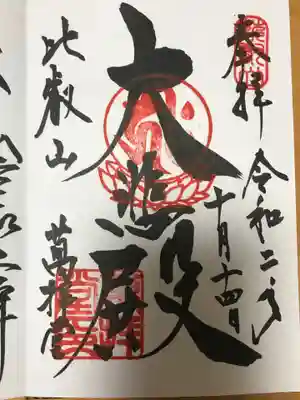 奉拝
令和二年
十月十四日
大悲殿
比叡山
萬拝堂